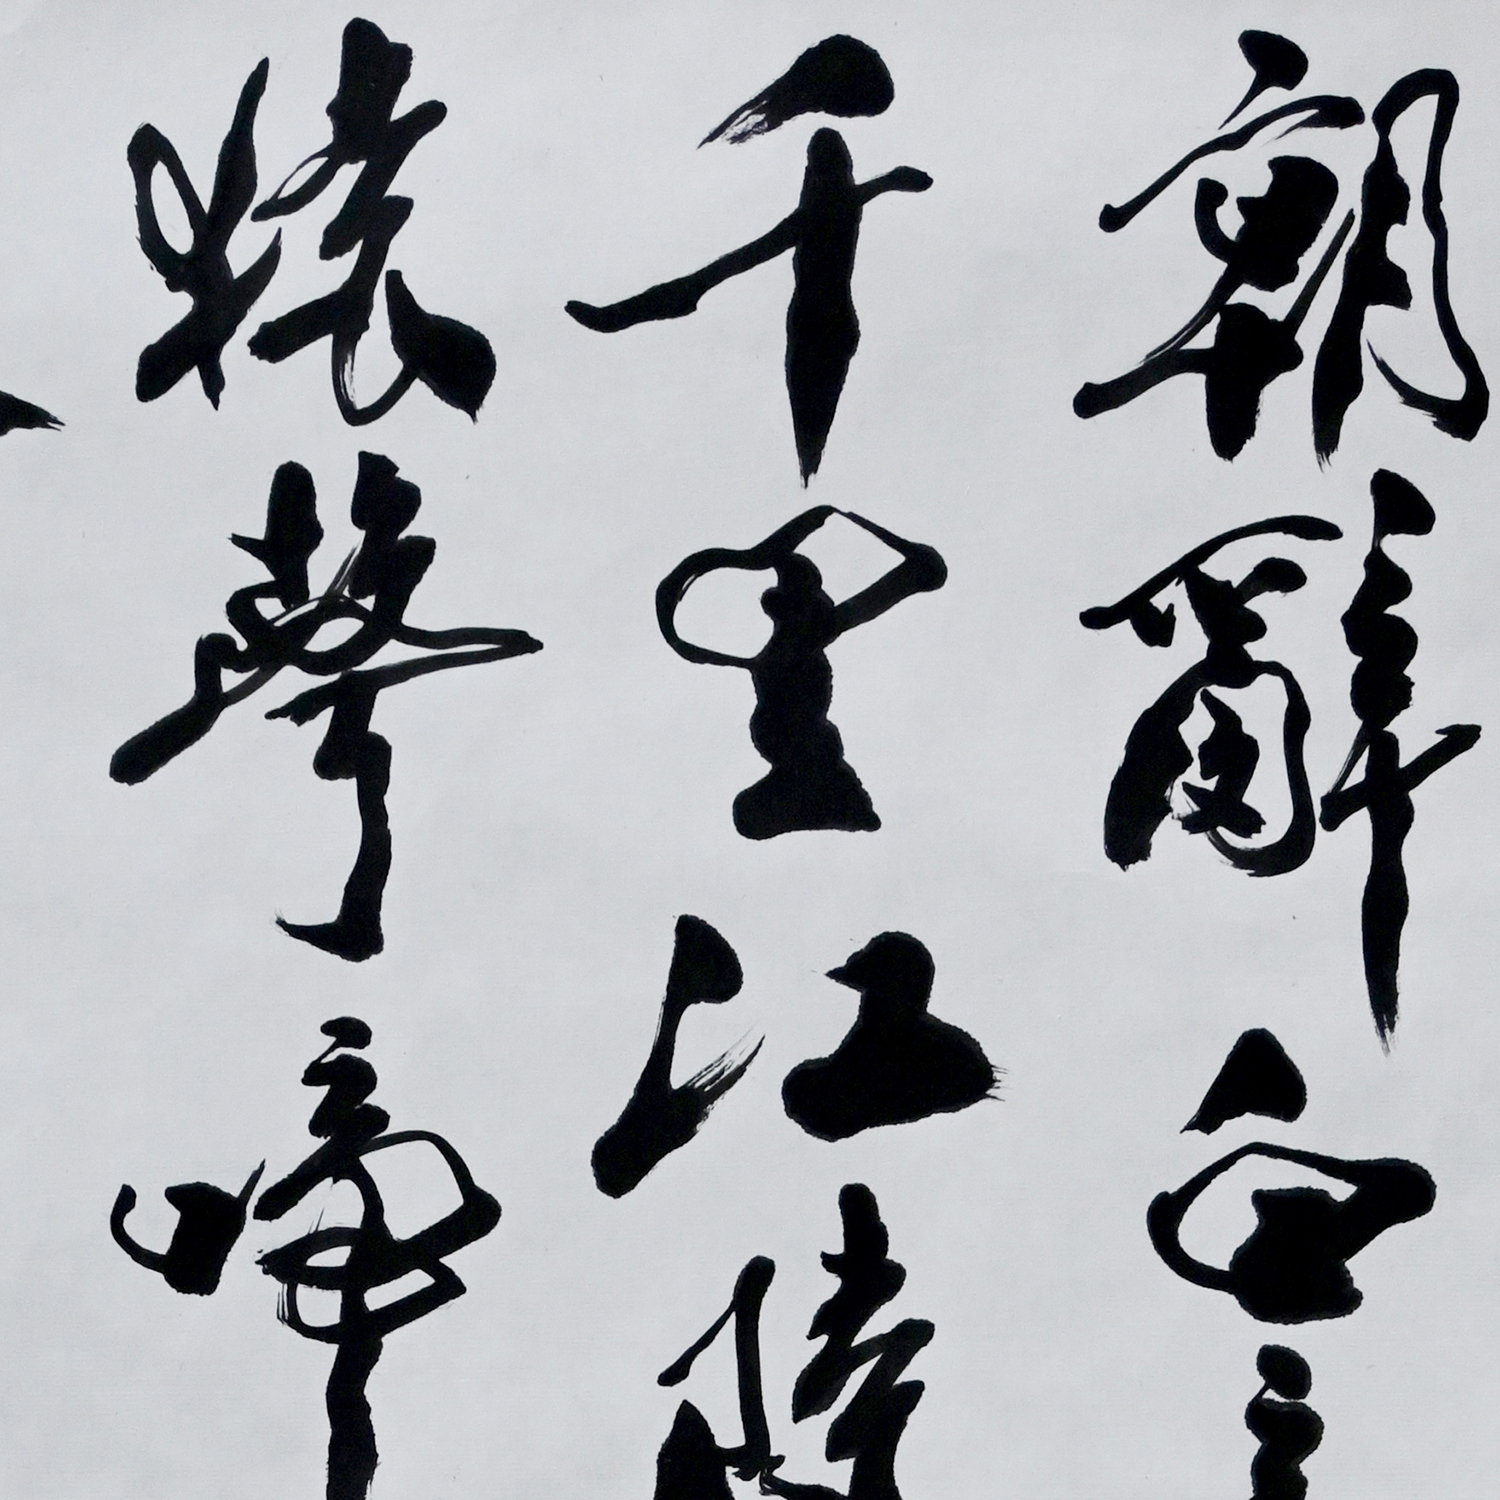 朝辭白
千里江陵
猿聲啼